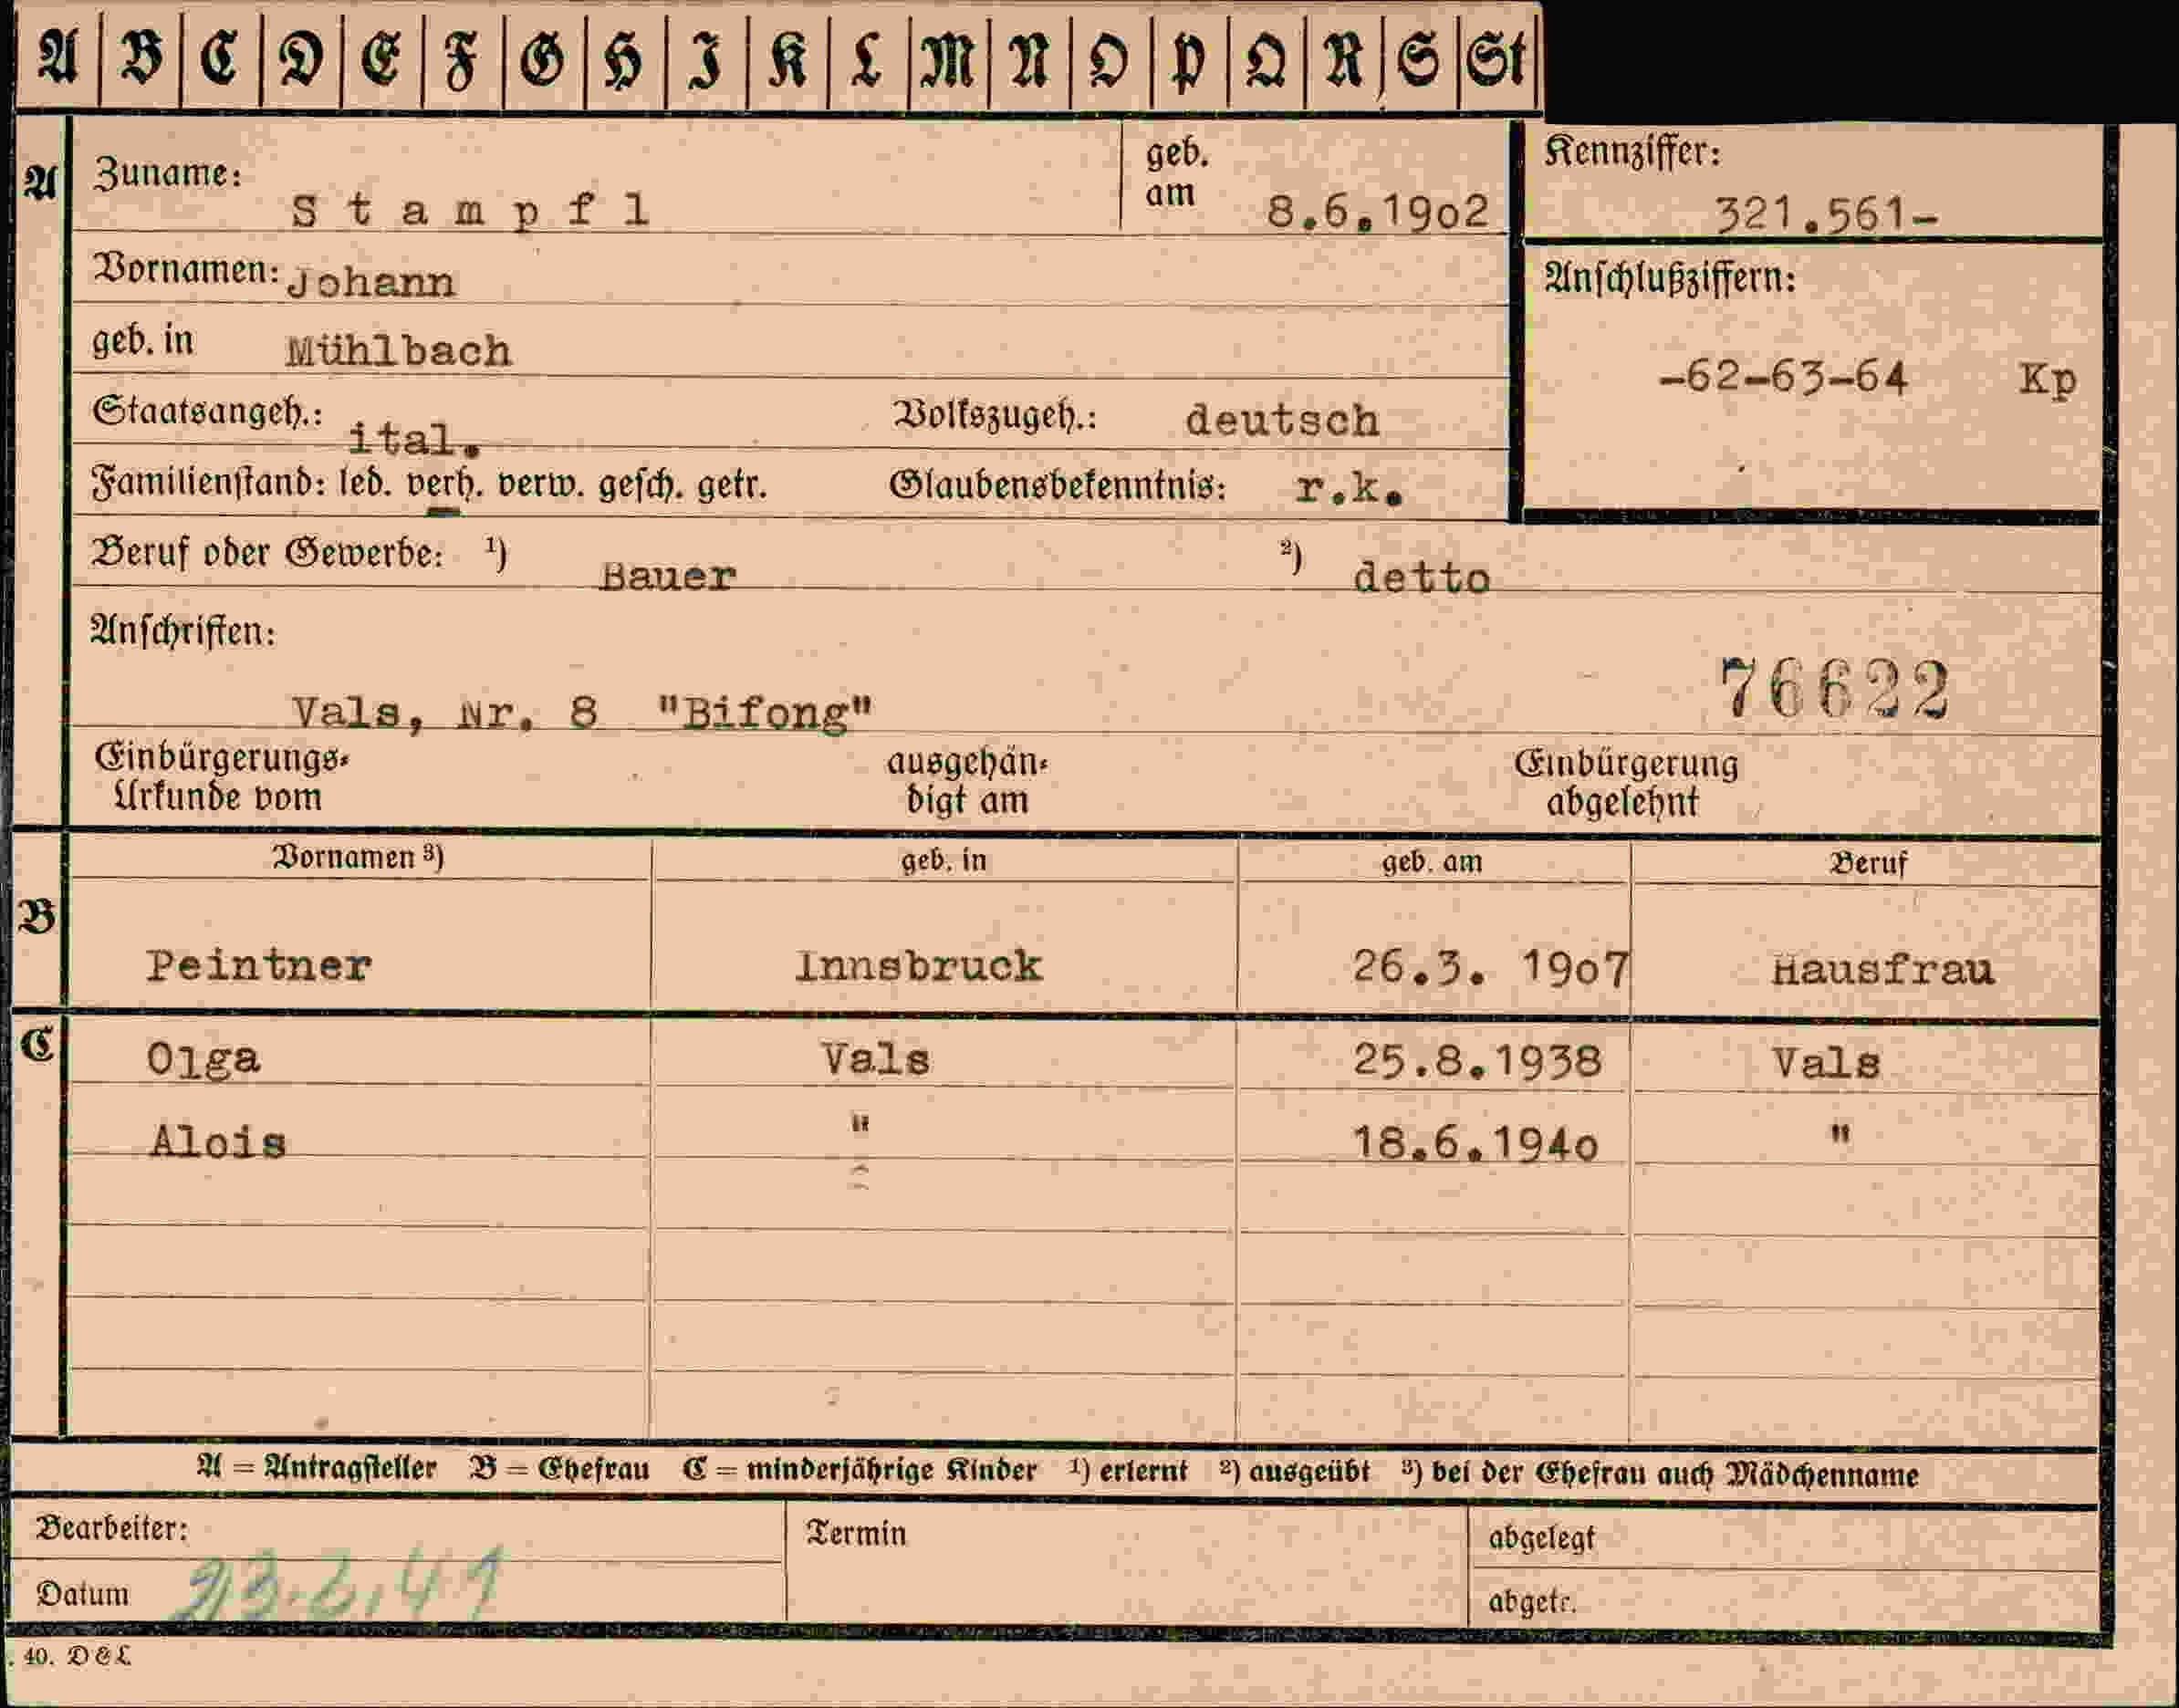 A B C D E F G H I K L M N O P Q R S St
A Zuname: Stampfl geb. am 8.6.19o2 Kennziffer: 321.561-
Vornamen: Johann Anschlußziffern:
geb. in Mühlbach -62-63-64 Kp
Staatsangeh.: ital. Volkszugeh.: deutsch
Familienstand: led. verh. verw. gesch. getr. Glaubensbekenntnis: r.k.
Beruf oder Gewerbe: ¹) Bauer ²) detto
Anschriften:
Vals, Nr. 8 "Bifong" 76622
Einbürgerungs- ausgehän- Einbürgerung
Urkunde vom digt am abgelehnt
Vornamen ³) geb. in geb. am Beruf
B Peintner Innsbruck 26.3. 19o7 Hausfrau
C Olga Vals 25.8.1938 Vals
Alois " 18.6.194o "
A = Antragsteller B = Ehefrau C = minderjährige Kinder ¹) erlernt ²) ausgeübt ³) bei der Ehefrau auch Mädchenname
Bearbeiter: Termin abgelegt
Datum abgetr.
. 40. D & L